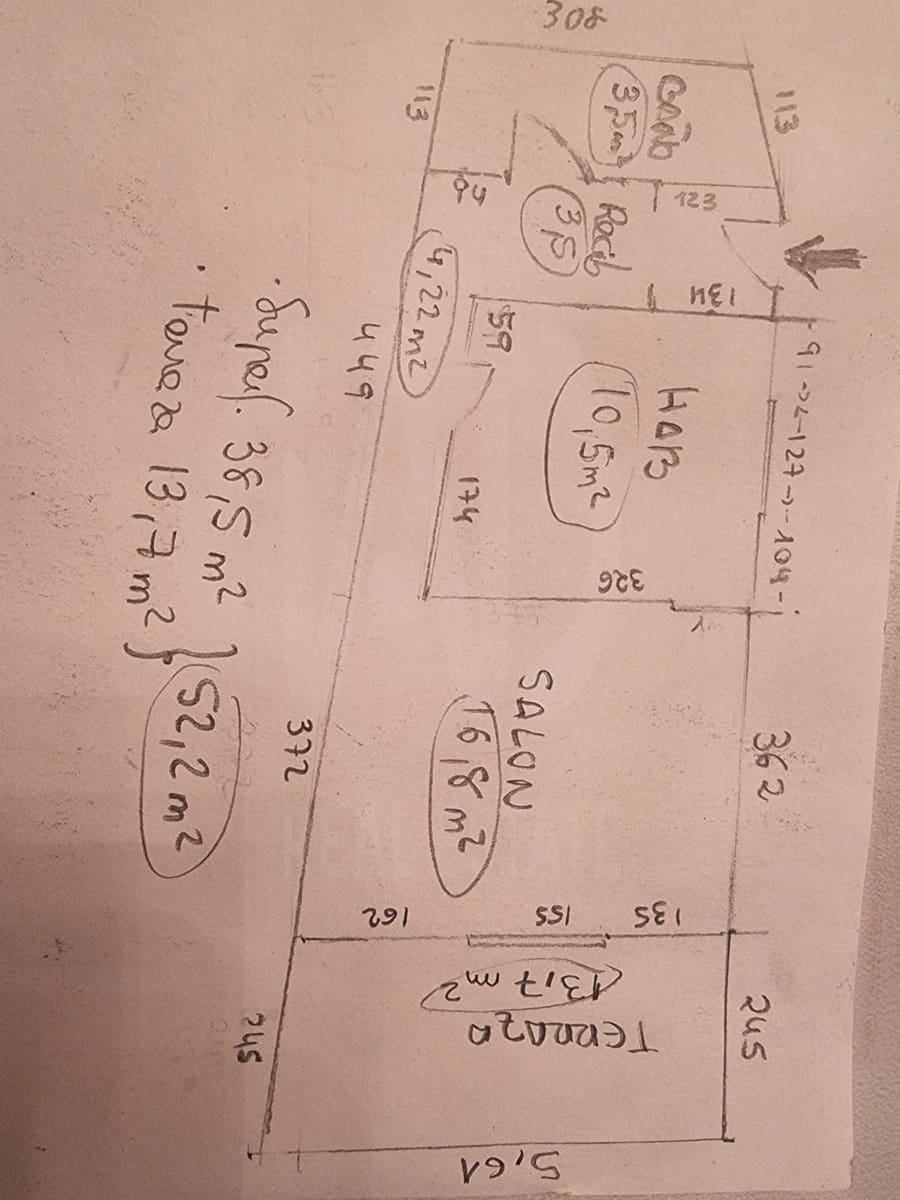 308
113
113
BAÑO
3,5m²
123
Recib
3,5
134
59
4,22m²
449
91 -> <- 127 -> - 104 -
HAB
10,5m²
174
326
SALON
16,8 m²
362
372
162
155
135
13,7 m²
TERRAZA
245
245
5,61
· Superf. 38,5 m²
· terraza 13,7 m² } 52,2 m²